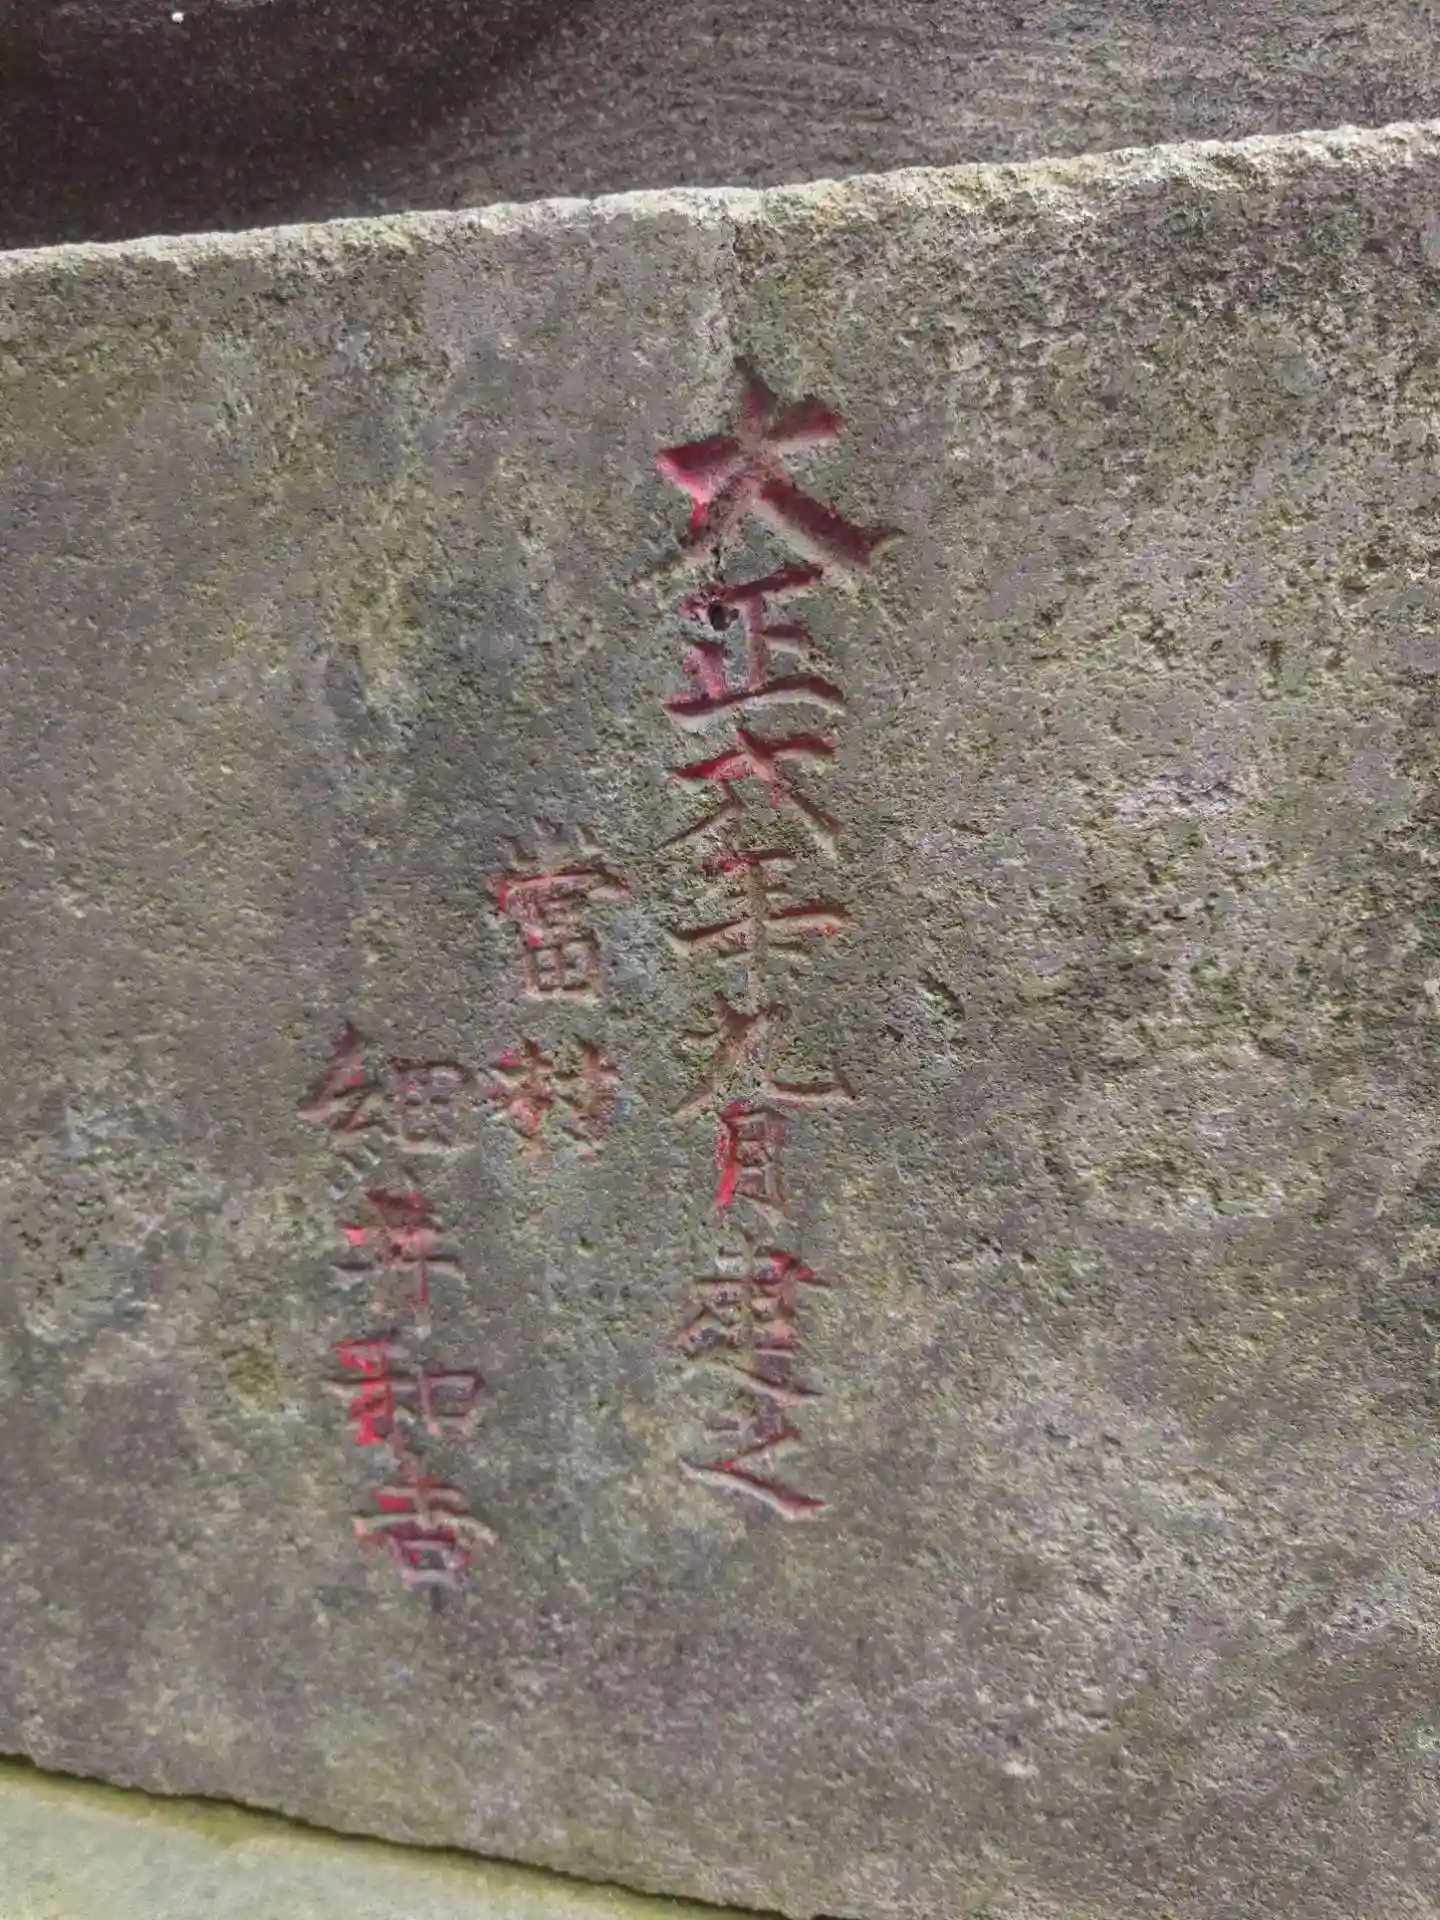 大正六年九月建之
當村
細井和吉